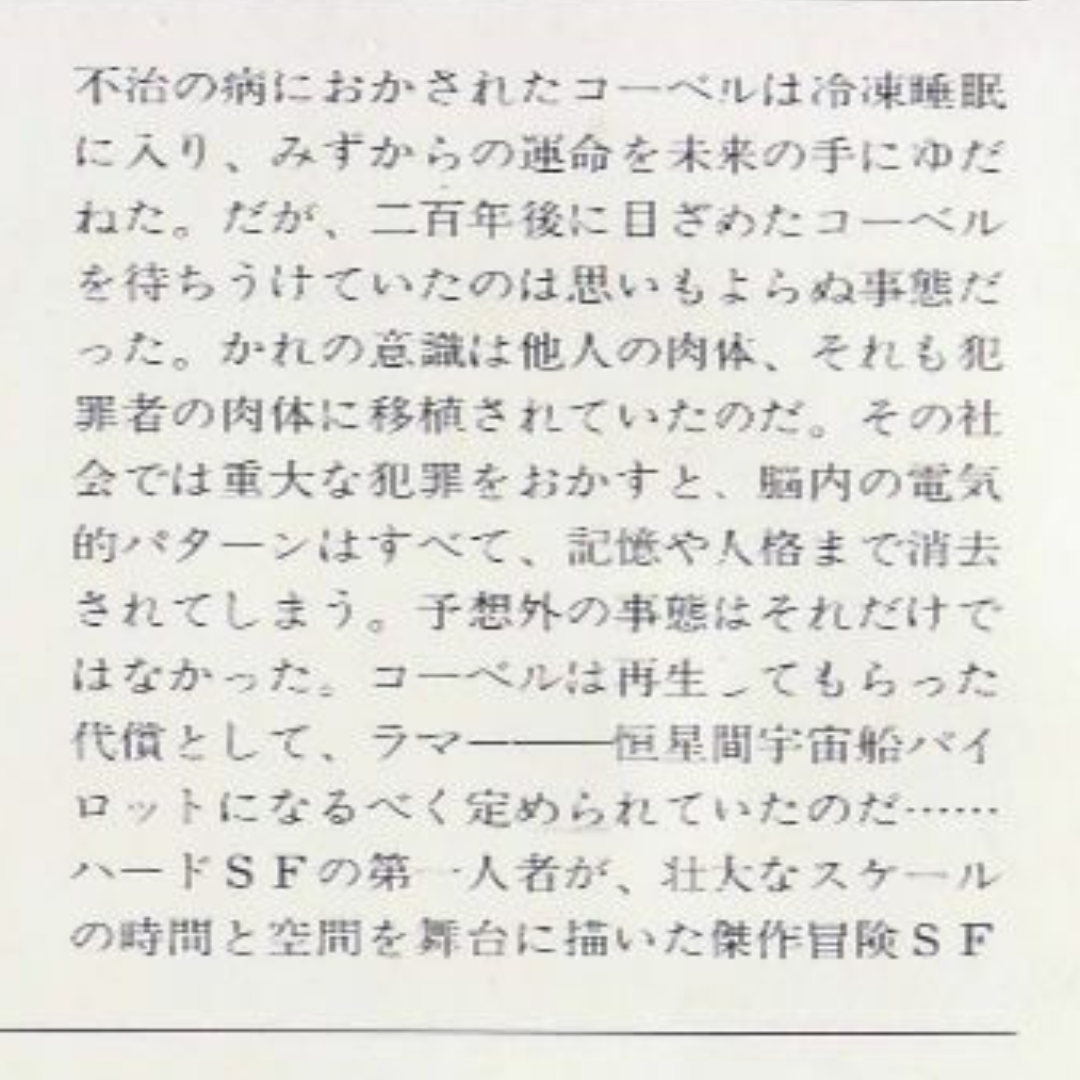 不治の病におかされたコーベルは冷凍睡眠
に入り、みずからの運命を未来の手にゆだ
ねた。だが、二百年後に目ざめたコーベル
を待ちうけていたのは思いもよらぬ事態だ
った。かれの意識は他人の肉体、それも犯
罪者の肉体に移植されていたのだ。その社
会では重大な犯罪をおかすと、脳内の電気
的パターンはすべて、記憶や人格まで消去
されてしまう。予想外の事態はそれだけで
はなかった。コーベルは再生してもらった
代償として、ラマー――恒星間宇宙船パイ
ロットになるべく定められていたのだ……
ハードＳＦの第一人者が、壮大なスケール
の時間と空間を舞台に描いた傑作冒険ＳＦ